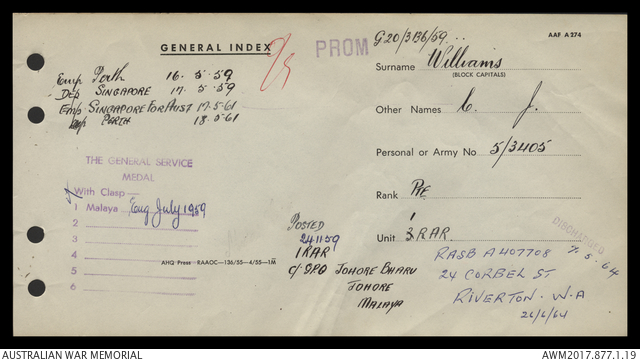 GENERAL INDEX
PROM
G20/3136/59
AAF A 274
Surname Williams
(BLOCK CAPITALS)
Other Names C. J.
Personal or Army No 5/3405
Rank Pte
Unit 3 RAR
1
Emp Perth 16.5.59
Dep SINGAPORE 17.5.59
Emp SINGAPORE FOR AUST 17.5.61
PERTH 18.5.61
THE GENERAL SERVICE
MEDAL
With Clasp—
1 Malaya Eng July 1959
2
3
4
5
6
AHQ Press RAAOC—136/55—4/55—1M
POSTED
24.11.59
1 RAR
C/- GPO JOHORE BHARU
JOHORE
MALAYA
DISCHARGED
7.5.64
RASB A407708
24 CORBEL ST
RIVERTON. W.A
26/6/64
AUSTRALIAN WAR MEMORIAL
AWM2017.877.1.19